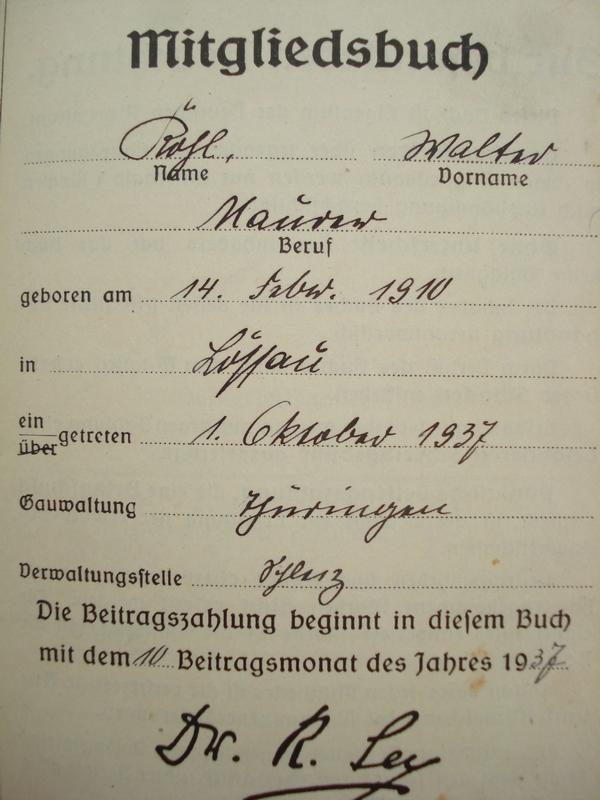 Mitgliedsbuch
Röhl, Walter
Name Vorname
Maurer
Beruf
geboren am 14. Febr. 1910
in Lössau
ein
über getreten 1. Oktober 1937
Gauwaltung Thüringen
Verwaltungsstelle Schleiz
Die Beitragszahlung beginnt in diesem Buch
mit dem 10 Beitragsmonat des Jahres 1937
Dr. R. Ley